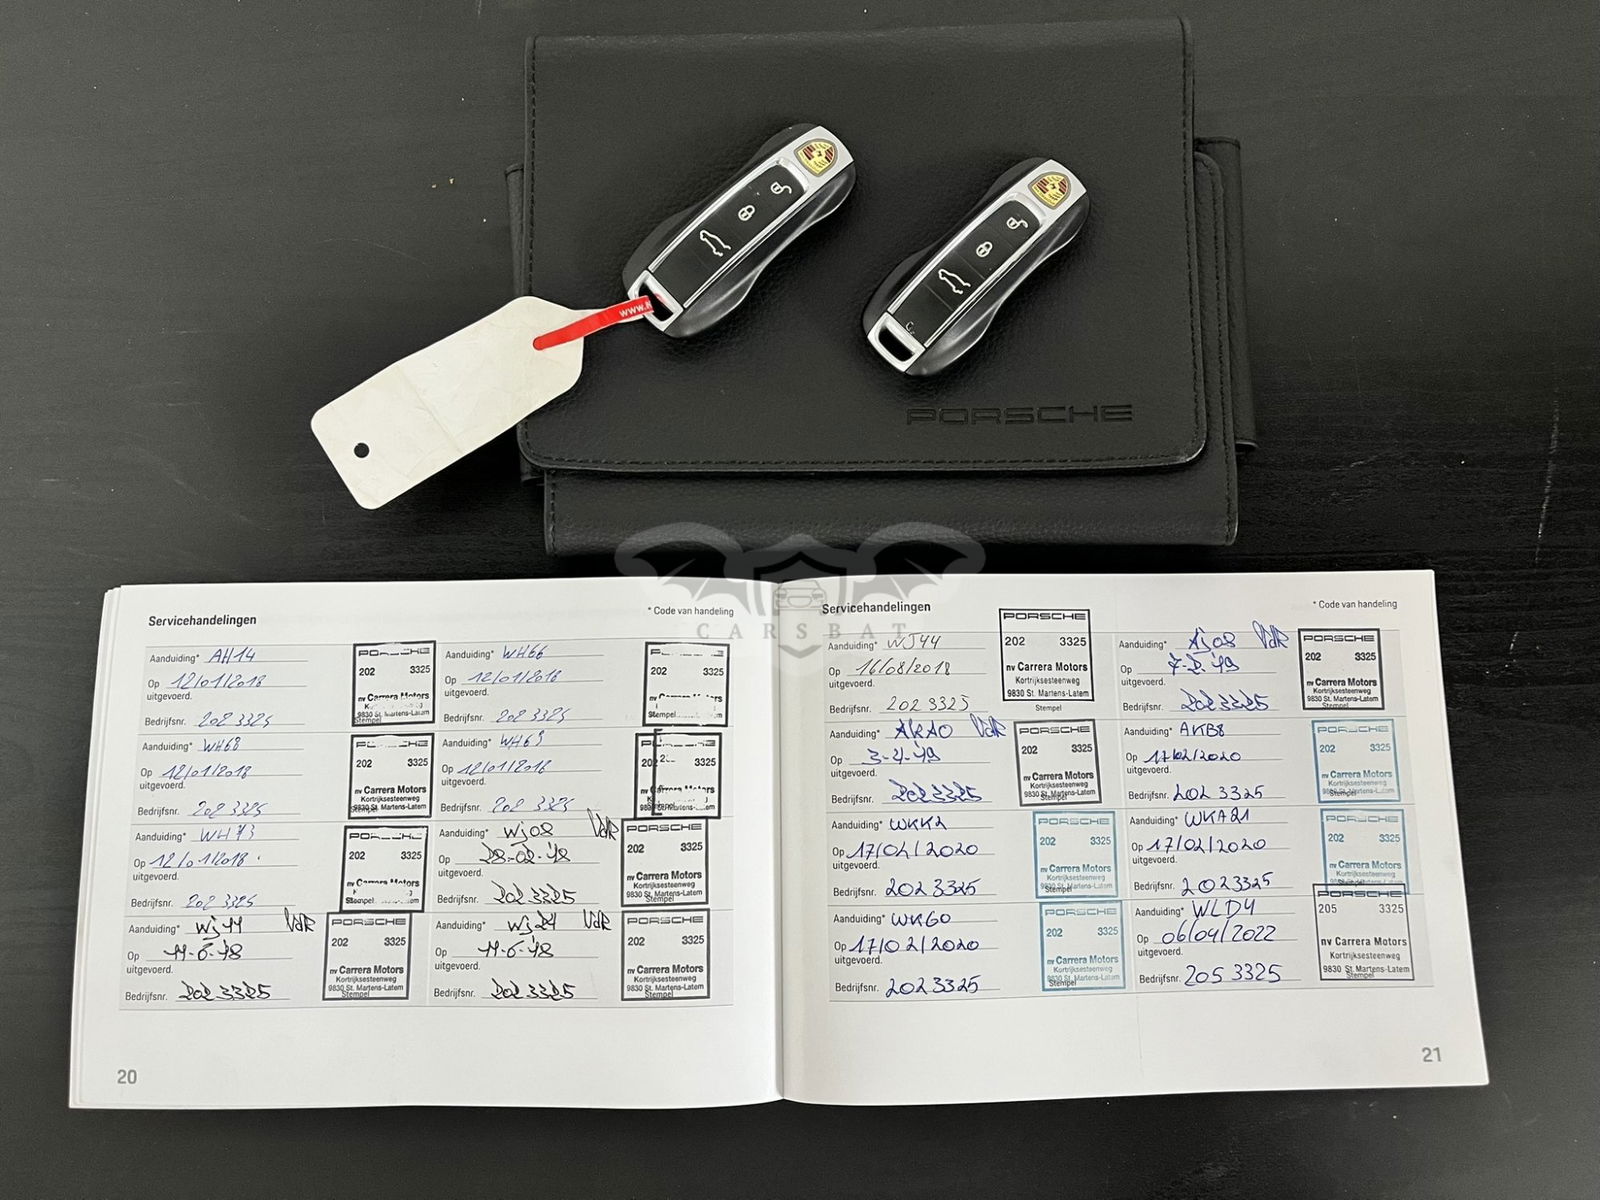 www.
PORSCHE
CARSBAT
Servicehandelingen
* Code van handeling
Aanduiding* AH14
Op 12/01/2018
uitgevoerd.
Bedrijfsnr. 202 3325
202 3325
nv Carrera Motors
9830 St. Martens-Latem
Stempel
Aanduiding* WH66
Op 12/01/2018
uitgevoerd.
Bedrijfsnr. 202 3325
202 3325
Stempel
Aanduiding* WH68
Op 12/01/2018
uitgevoerd.
Bedrijfsnr. 202 3325
202 3325
nv Carrera Motors
Kortrijksesteenweg
9830 St. Martens-Latem
Aanduiding* WH69
Op 12/01/2018
uitgevoerd.
Bedrijfsnr. 202 3325
202 3325
Aanduiding* WH73
Op 12/01/2018
uitgevoerd.
Bedrijfsnr. 202 3325
202 3325
nv Carrera Motors
Aanduiding* WJ08 VdR
Op 28-02-18
uitgevoerd.
Bedrijfsnr. 202 3325
PORSCHE
202 3325
nv Carrera Motors
Kortrijksesteenweg
9830 St. Martens-Latem
Stempel
Aanduiding* WJ44 VdR
Op 11-6-18
uitgevoerd.
Bedrijfsnr. 202 3325
PORSCHE
202 3325
nv Carrera Motors
Kortrijksesteenweg
9830 St. Martens-Latem
Stempel
Aanduiding* WJ24 VdR
Op 11-6-18
uitgevoerd.
Bedrijfsnr. 202 3325
PORSCHE
202 3325
nv Carrera Motors
Kortrijksesteenweg
9830 St. Martens-Latem
Stempel
20
Servicehandelingen
* Code van handeling
Aanduiding* WJ44
Op 16/08/2018
uitgevoerd.
Bedrijfsnr. 202 3325
PORSCHE
202 3325
nv Carrera Motors
Kortrijksesteenweg
9830 St. Martens-Latem
Stempel
Aanduiding* AJ08 VdR
Op 7-2-19
uitgevoerd.
Bedrijfsnr. 202 3325
PORSCHE
202 3325
nv Carrera Motors
Kortrijksesteenweg
9830 St. Martens-Latem
Stempel
Aanduiding* AKA0 VdR
Op 3-4-19
uitgevoerd.
Bedrijfsnr. 202 3325
PORSCHE
202 3325
nv Carrera Motors
Kortrijksesteenweg
9830 St. Martens-Latem
Stempel
Aanduiding* AKB8
Op 17/02/2020
uitgevoerd.
Bedrijfsnr. 202 3325
PORSCHE
202 3325
nv Carrera Motors
Kortrijksesteenweg
Stempel
Aanduiding* WKK2
Op 17/02/2020
uitgevoerd.
Bedrijfsnr. 202 3325
PORSCHE
202 3325
nv Carrera Motors
Kortrijksesteenweg
Stempel
Aanduiding* WKA21
Op 17/02/2020
uitgevoerd.
Bedrijfsnr. 202 3325
PORSCHE
202 3325
nv Carrera Motors
Kortrijksesteenweg
Aanduiding* WK60
Op 17/02/2020
uitgevoerd.
Bedrijfsnr. 202 3325
PORSCHE
202 3325
nv Carrera Motors
Kortrijksesteenweg
9830 St. Martens-Latem
Stempel
Aanduiding* WLD4
Op 06/04/2022
uitgevoerd.
Bedrijfsnr. 205 3325
PORSCHE
205 3325
nv Carrera Motors
9830 St. Martens-Latem
21